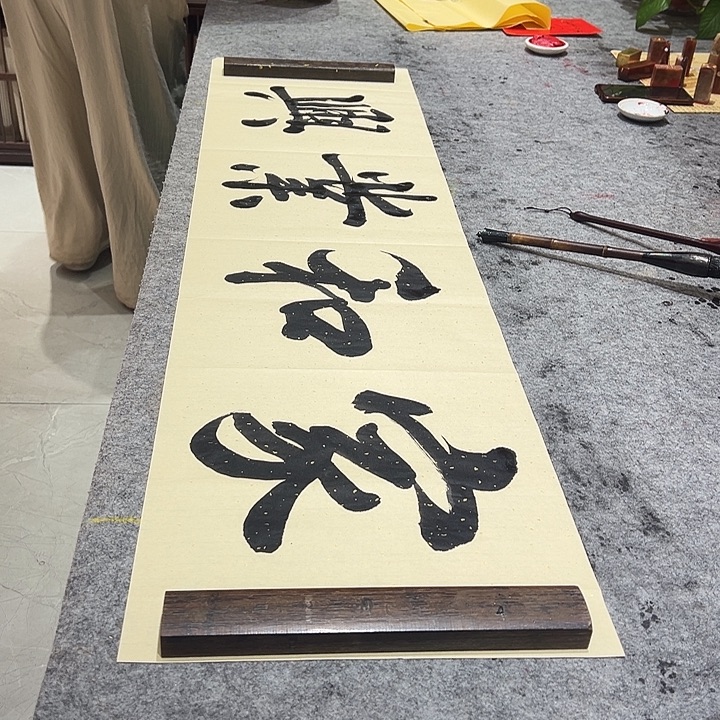 家和業興